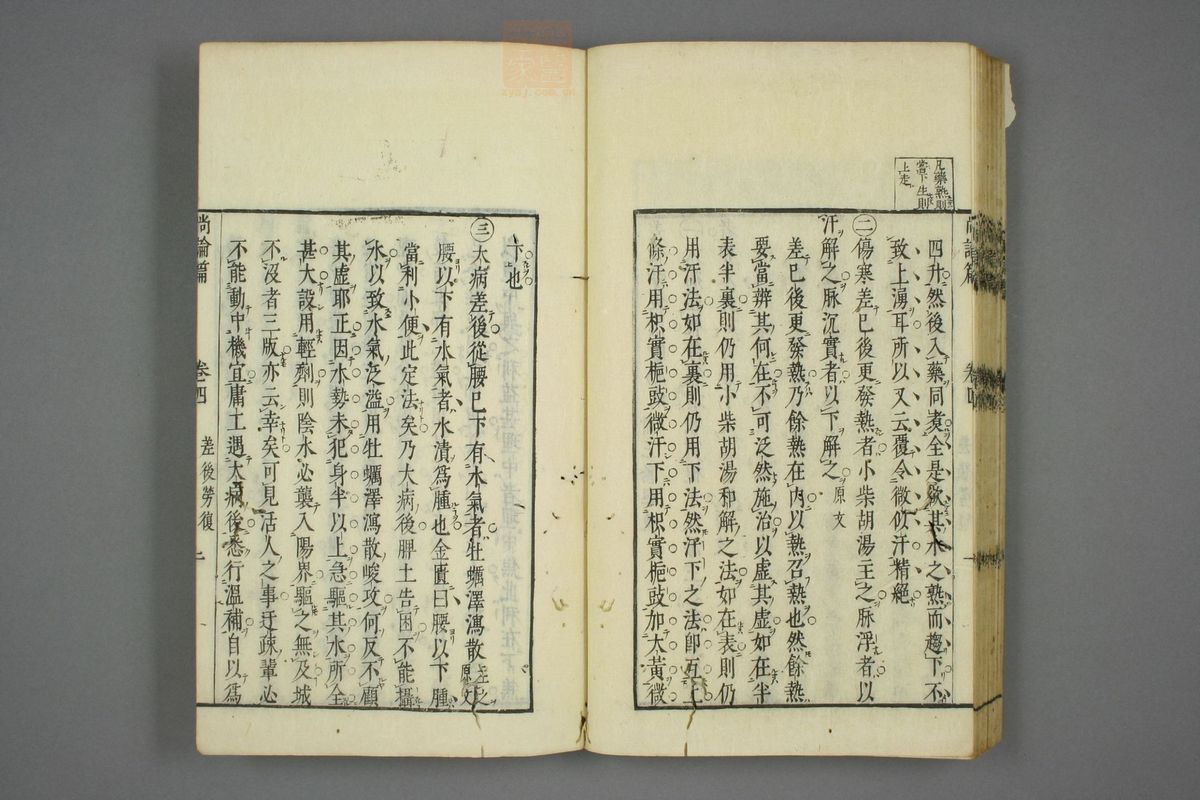 凡藥熟則
當下生則
上走
尚論篇 卷四
四升然後入藥同煑全是欲其水之熟而趨下不
致上湧耳所以又云覆令微似汗精絕
㊁傷寒差已後更發熱者小柴胡湯主之脉浮者以
汗解之脉沉實者以下解之原文
差已後更發熱乃餘熱在內以熱召熱也然餘熱
要當辨其何在不可泛然施治以虛其虛如在半
表半裏則仍用小柴胡湯和解之法如在表則仍
用汗法如在裏則仍用下法然汗下之法即互上
條汗用枳實梔豉微汗下用枳實梔豉加大黃微
下也
㊂大病差後從腰已下有水氣者牡蠣澤瀉散主之原文
腰以下有水氣者水漬爲腫也金匱曰腰以下腫
當利小便此定法矣乃大病後脾土告困不能攝
水以致水氣泛濫用牡蠣澤瀉散峻攻何反不顧
其虛耶正因水勢未犯身半以上急驅其水所全
甚大設用輕劑則陰水必襲入陽界驅之無及城
不沒者三版亦云幸矣可見活人之事迂疎輩必
不能動中機宜庸工遇大病後悉行溫補自以爲
尚論篇 卷四 差後勞復 二
zysj.com.cn